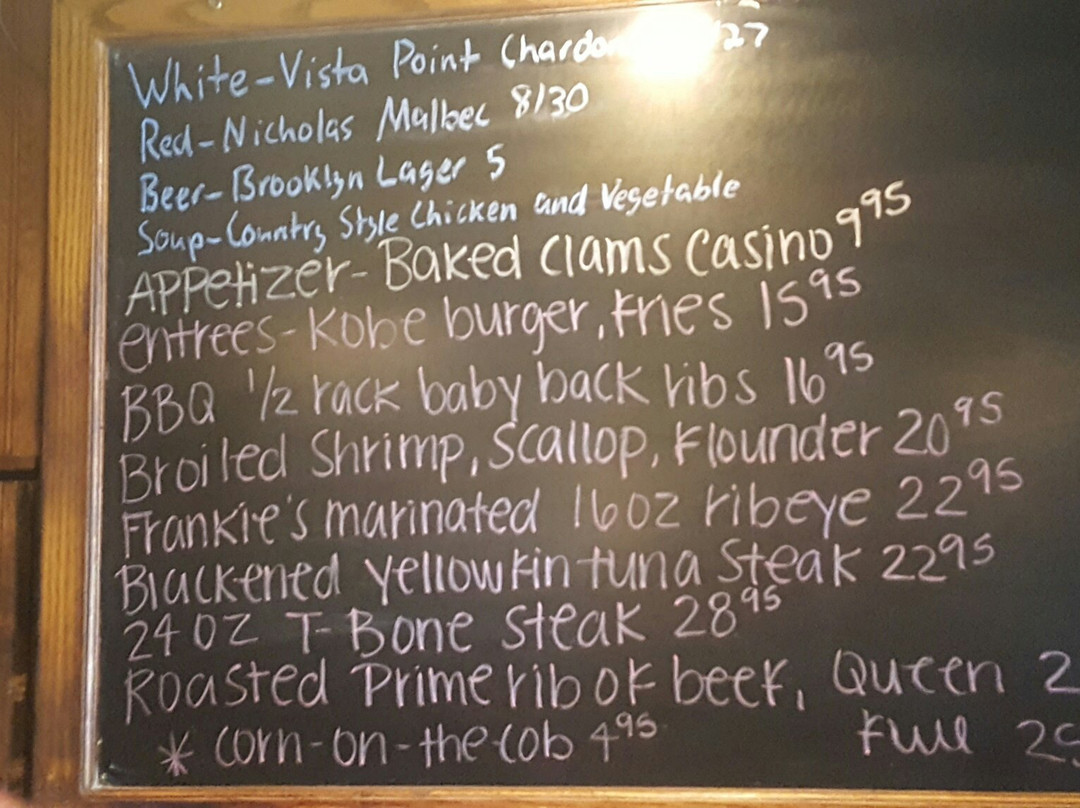 White-Vista Point 27
Red-Nicholas Malbec 8/30
Beer-Brooklyn Lager 5
Soup-Country Style Chicken and Vegetable
APPetizer-Baked Clams Casino 9 95
entrees-Kobe burger, Fries 15 95
BBQ 1/2 rack baby back ribs 16 95
Broiled Shrimp, Scallop, Flounder 20 95
Frankie's marinated 16oz ribeye 22 95
Blackened yellowfin tuna Steak 22 95
24 OZ T-Bone Steak 28 95
Roasted Prime rib of beef, Queen
* corn-on-the-cob 4 95 Full